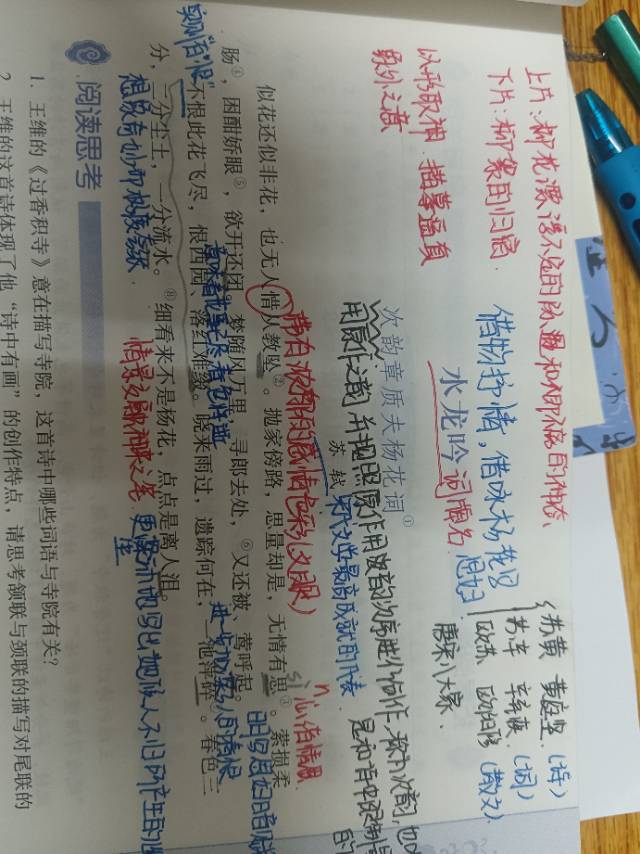 上片:柳花漂泊不定的际遇和不即不离的神态
下片:柳絮的归宿.
以形取神 描摹逼真
象外之意
借物抒情,借咏杨花写思妇
苏黄 黄庭坚.(诗)
苏辛 辛弃疾.(词)
欧苏 欧阳修(散文).
唐宋八大家.
水龙吟 词牌名.
次韵章质夫杨花词①
用原作之韵,并按照原作用韵次序进行创作,称为次韵,也
苏轼
宋代文学最高成就的代表
是和诗中限制
带有浓郁的感情色彩(文眼)
n 心绪情思
似花还似非花,也无人惜从教坠②。抛家傍路,思量却是,无情有思③。萦损柔
肠④,困酣娇眼⑤,欲开还闭。梦随风万里,寻郎去处,⑥又还被、莺呼起。
实则“有恨”
不恨此花飞尽,恨西园、落红难缀。晓来雨过,遗踪何在,一池萍碎⑦。春色三
分,二分尘土,一分流水。⑧细看来不是杨花,点点是离人泪。
想象奇妙而极度夸张
情景交融神来之笔.
阅读思考
1. 王维的《过香积寺》意在描写寺院,这首诗中哪些词语与寺院有关?
? 王维的这首诗体现了他“诗中有画”的创作特点,请思考颔联与颈联的描写对尾联的